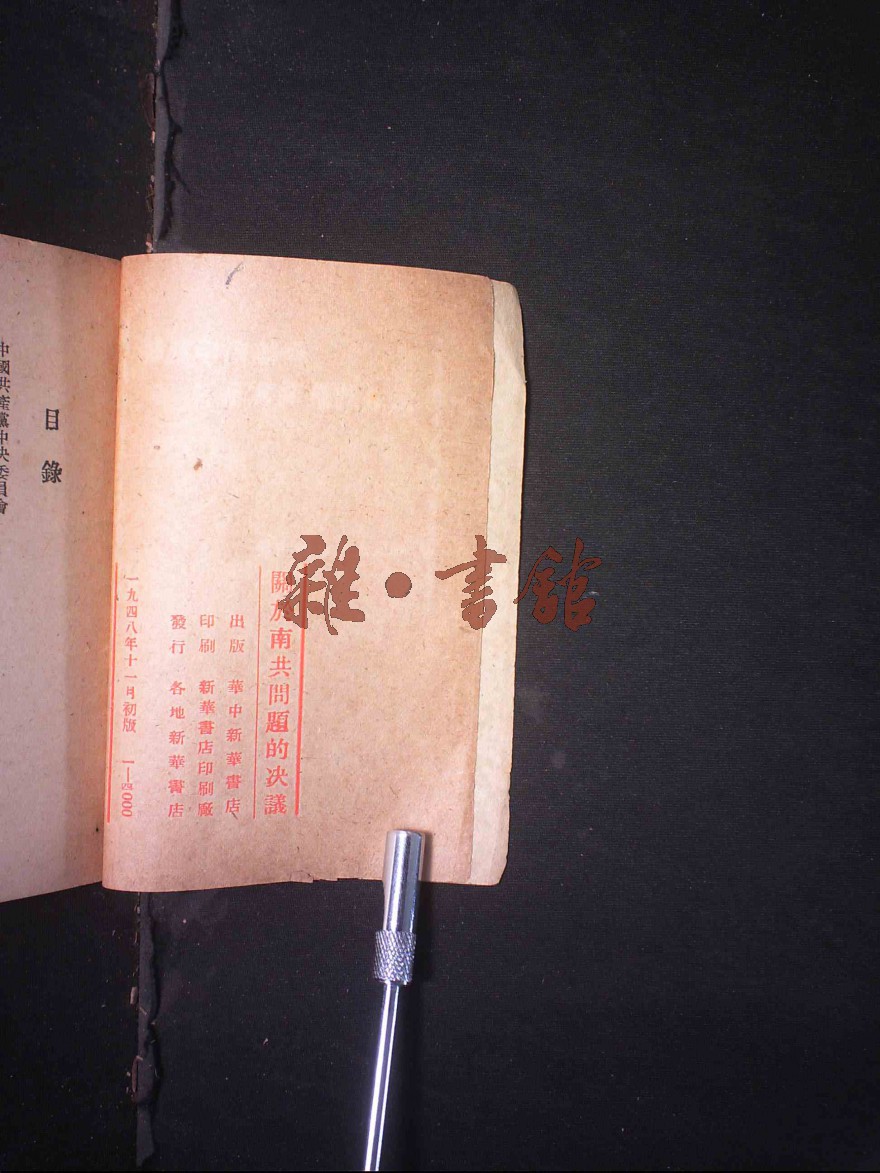 關於南共問題的决議
出版 華中新華書店
印刷 新華書店印刷廠
發行 各地新華書店
一九四八年十一月初版 1—四000
目錄
中國共產黨中央委員會
雜·書館